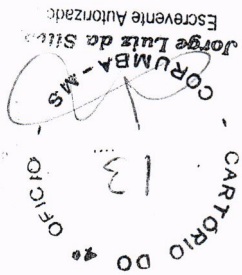 CARTÓRIO DO
OFICIO
CORUMBA-MS
Jorge Luiz da
Escrevente Autorizado